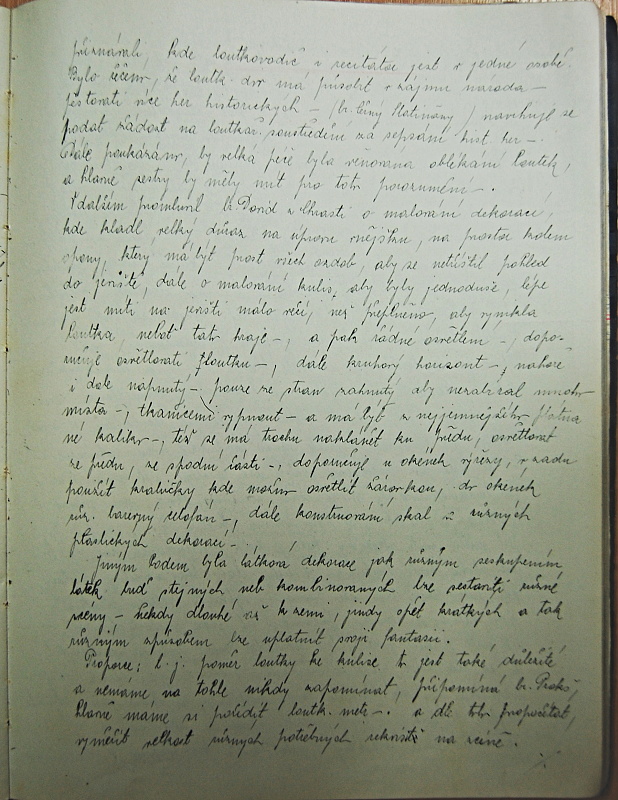 přiznávali, kde loutkovodič i recitátor jest v jedné osobě.
Bylo řečeno, že loutk. div. má působit v zájmu národa –
pěstovati více her historických – (br. Černý        ) navrhuje se
podat žádost na loutkář. soustředění za sepsání hist. her –.
Dále poukázáno, by velká péče byla věnována oblékání loutek,
a hlavně sestry by měly mít pro toto porozumění –.
V dalším promluvil br. David z        o malování dekorací,
kde kladl velký důraz na úpravu vnějšku, na prostor kolem
opony, který má být prost všech ozdob, aby se netříštil pohled
do jeviště, dále o malování kulis, aby byly jednoduše, lépe
jest míti na jevišti málo věcí, než přeplněno, aby vynikla
loutka, neboť tato hraje –, a pak řádné osvětlení –, dopo-
ručuje osvětlovati loutku –, dále kruhový horizont –, nahoře
i dole napnutý – pouze ze stran zahnutý aby nezabíral mnoho
místa –, tkanicemi vypnout – a má být z nejjemnějšího
né kaliko –, též se má trochu naklánět ku předu, osvětlovat
ze předu, ze spodní části –, doporučuje u okének výřezy, v zadu
použít krabičky kde možno osvětlit žárovkou, do okének
růz. barevný celofán –, dále konstruování skal a různých
plastických dekorací –.
Jiným bodem byla látková dekorace jak různým seskupením
látek buď stejných neb kombinovaných lze sestaviti různé
scény – někdy dlouhé až k zemi, jindy opět krátkých a tak
různým způsobem lze uplatnit svoji fantasii.
Proporce; t. j. poměr loutky ke kulise to jest také důležité
a nemáme na tohle nikdy zapomínat, připomíná br.
hlavně máme si pořídit loutk. metr –. a dle toho propočítat,
vyměřit velkost různých potřebných rekvisit na scéně.